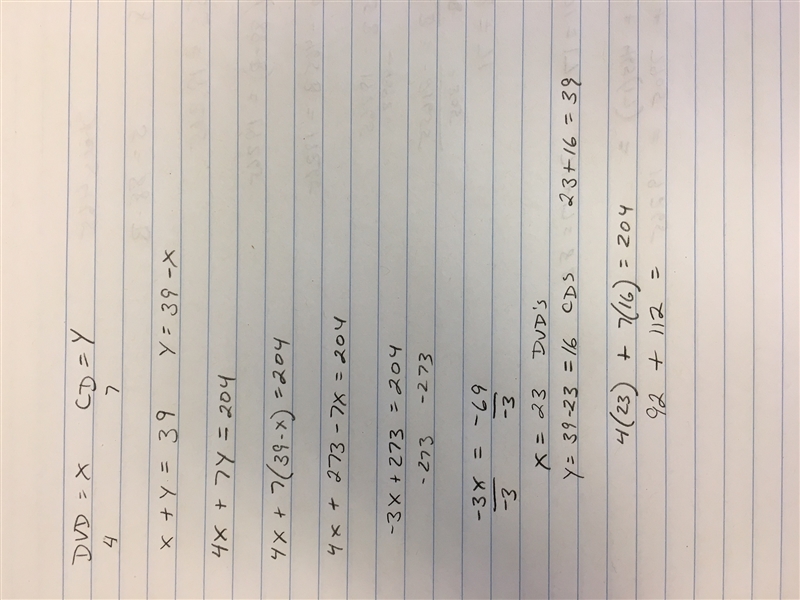 DVD = X CD = Y
4 7
x + y = 39 y = 39 - x
4x + 7y = 204
4x + 7(39-x) = 204
4x + 273 - 7x = 204
-3x + 273 = 204
-273 -273
-3x = -69
-3 -3
x = 23 DVD's
y = 39-23 = 16 CDS 23+16 = 39
4(23) + 7(16) = 204
92 + 112 =